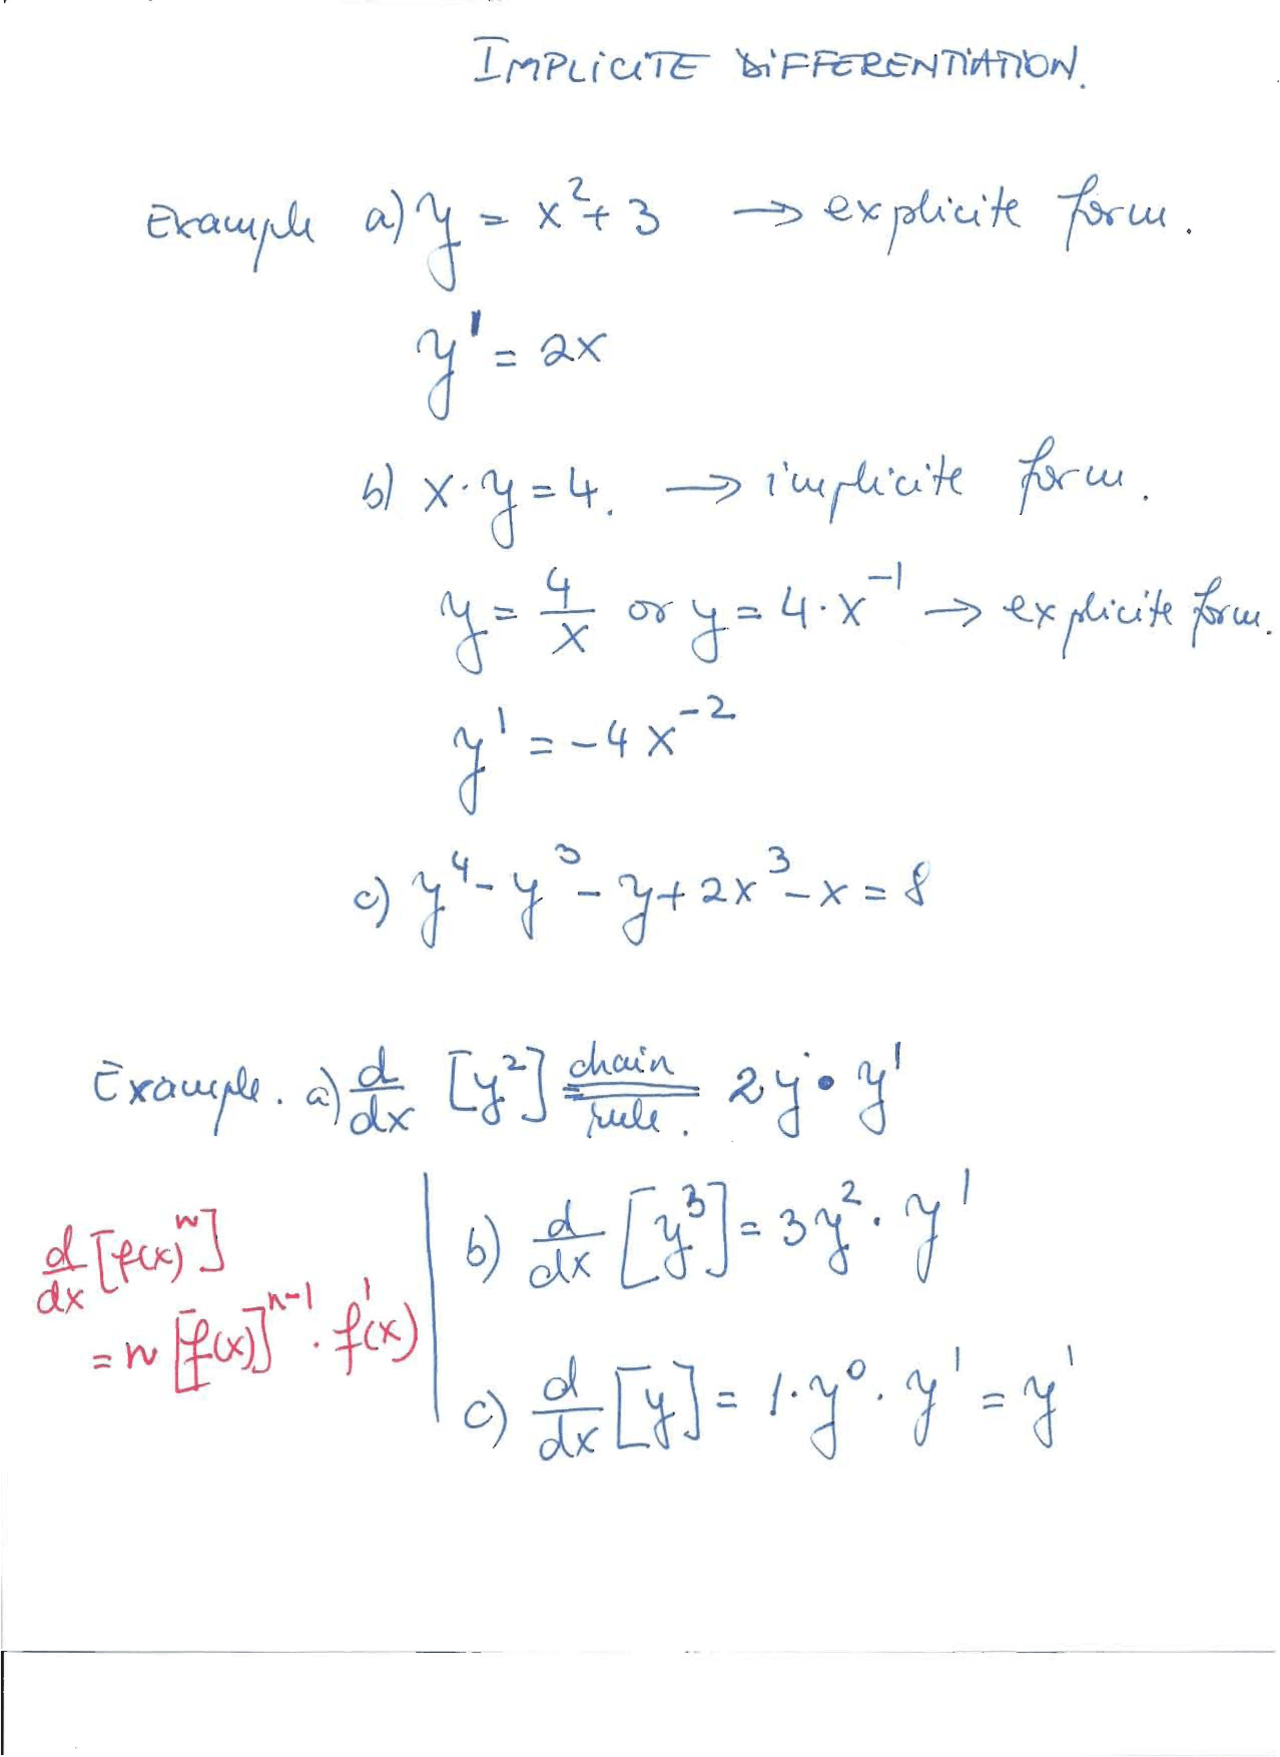 IMPLICITE DIFFERENTIATION.
Example a) y = x²+3 → explicite form.
y' = 2x
b) x·y=4. → implicite form.
y = 4/x or y = 4·x⁻¹ → explicite form.
y' = -4x⁻²
c) y⁴-y³-y+2x³-x=8
Example. a) d/dx [y²] chain rule. 2y • y'
b) d/dx [y³] = 3y²·y'
d/dx [f(x)ⁿ]
= n [f(x)]ⁿ⁻¹ · f'(x)
c) d/dx [y] = 1·y⁰·y' = y'